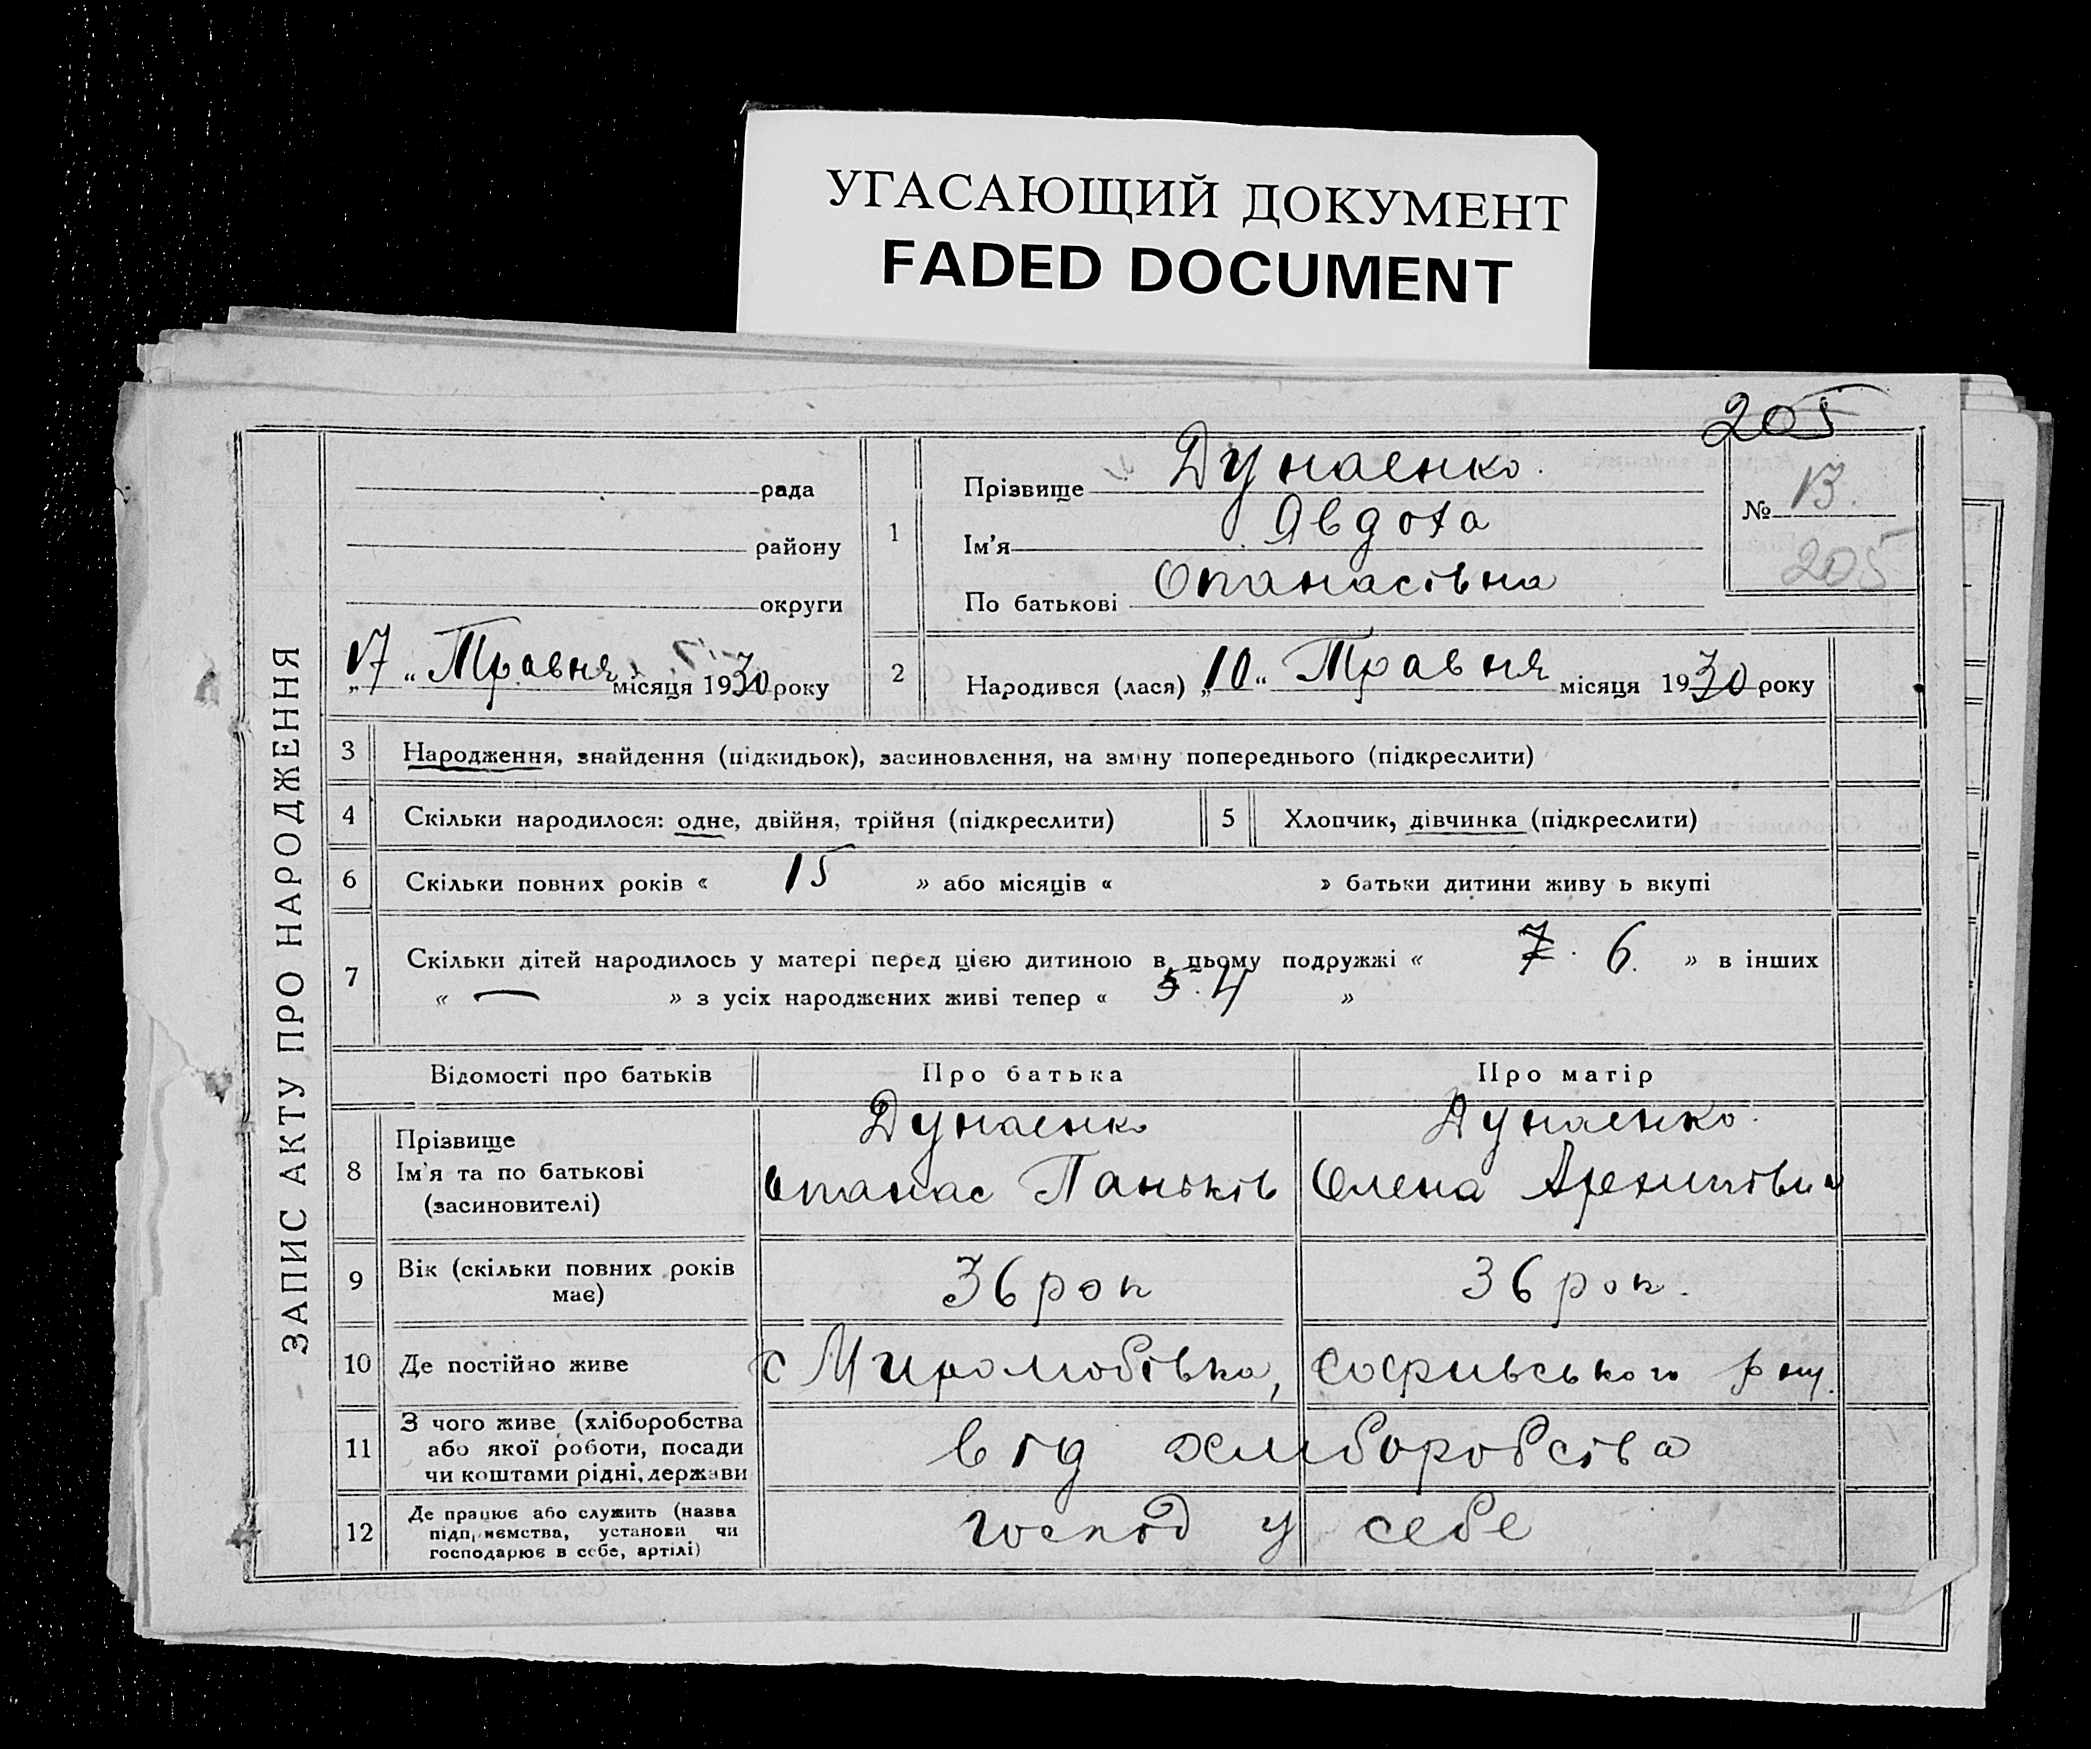 УГАСАЮЩИЙ ДОКУМЕНТ
FADED DOCUMENT
205
ЗАПИС АКТУ ПРО НАРОДЖЕННЯ
рада
району
округи
„17“ Травня місяця 1930 року
1
Прізвище Дунаєнко.
Ім'я Явдоха
По батькові Опанасівна
№ 13.
205
2
Народився (лася) „10“ Травня місяця 1930 року
3 Народження, знайдення (підкидьок), засиновлення, на зміну попереднього (підкреслити)
4 Скільки народилося: одне, двійня, трійня (підкреслити)
5 Хлопчик, дівчинка (підкреслити)
6 Скільки повних років « 15 » або місяців « » батьки дитини живу ь вкупі
7 Скільки дітей народилось у матері перед цією дитиною в цьому подружжі « 7. 6. » в інших
« — » з усіх народжених живі тепер « 5. 4 »
Відомості про батьків Про батька Про матір
8 Прізвище
Ім'я та по батькові
(засиновителі)
Дунаєнко
Опанас Паньків
Дунаєнко.
Олена Архипівна
9 Вік (скільки повних років
має)
36 рок
36 рок.
10 Де постійно живе
с Миролюбівка, Софивського рну.
11 З чого живе (хліборобства
або якої роботи, посади
чи коштами рідні, держави
від хлиборобства
12 Де працює або служить (назва
підприємства, установи чи
господарює в себе, артілі)
господ у себе